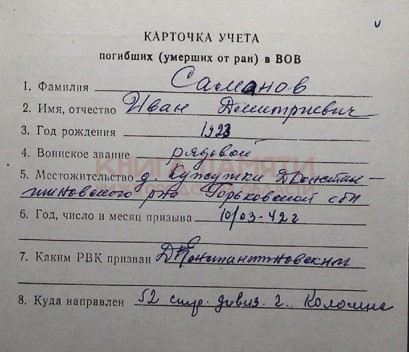 КАРТОЧКА УЧЕТА
погибших (умерших от ран) в ВОВ
1. Фамилия Саманов
2. Имя, отчество Иван Дмитриевич
3. Год рождения 1923
4. Воинское звание рядовой
КНИГА ПАМЯТИ
5. Местожительство д. Кужутки Д Констан-
тиновского р-на Горьковской обл
6. Год, число и месяц призыва 10/03-42 г
7. Каким РВК призван Д Константиновским
8. Куда направлен 52 стр. дивиз. г. Коломна